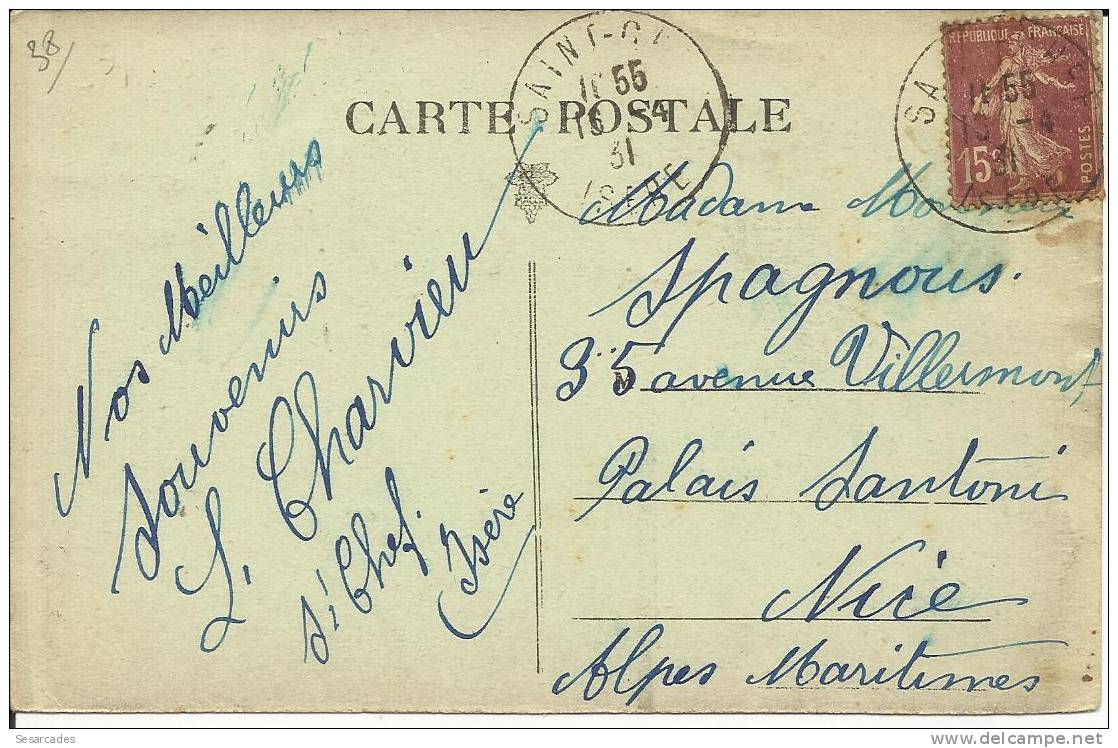 38/
CARTE POSTALE
SAINT-C
11 55
16 -4
31
ISERE
REPUBLIQUE FRANÇAISE
15
POSTES
11 55
-4
31
ISERE
Nos Meilleurs
Souvenirs
L. Charvieu
St Chef.
(Isère
Madame
Spagnous.
35 avenue Villermont
Palais Santoni
Nice
Alpes Maritimes
M
Sesarcades
www.delcampe.net